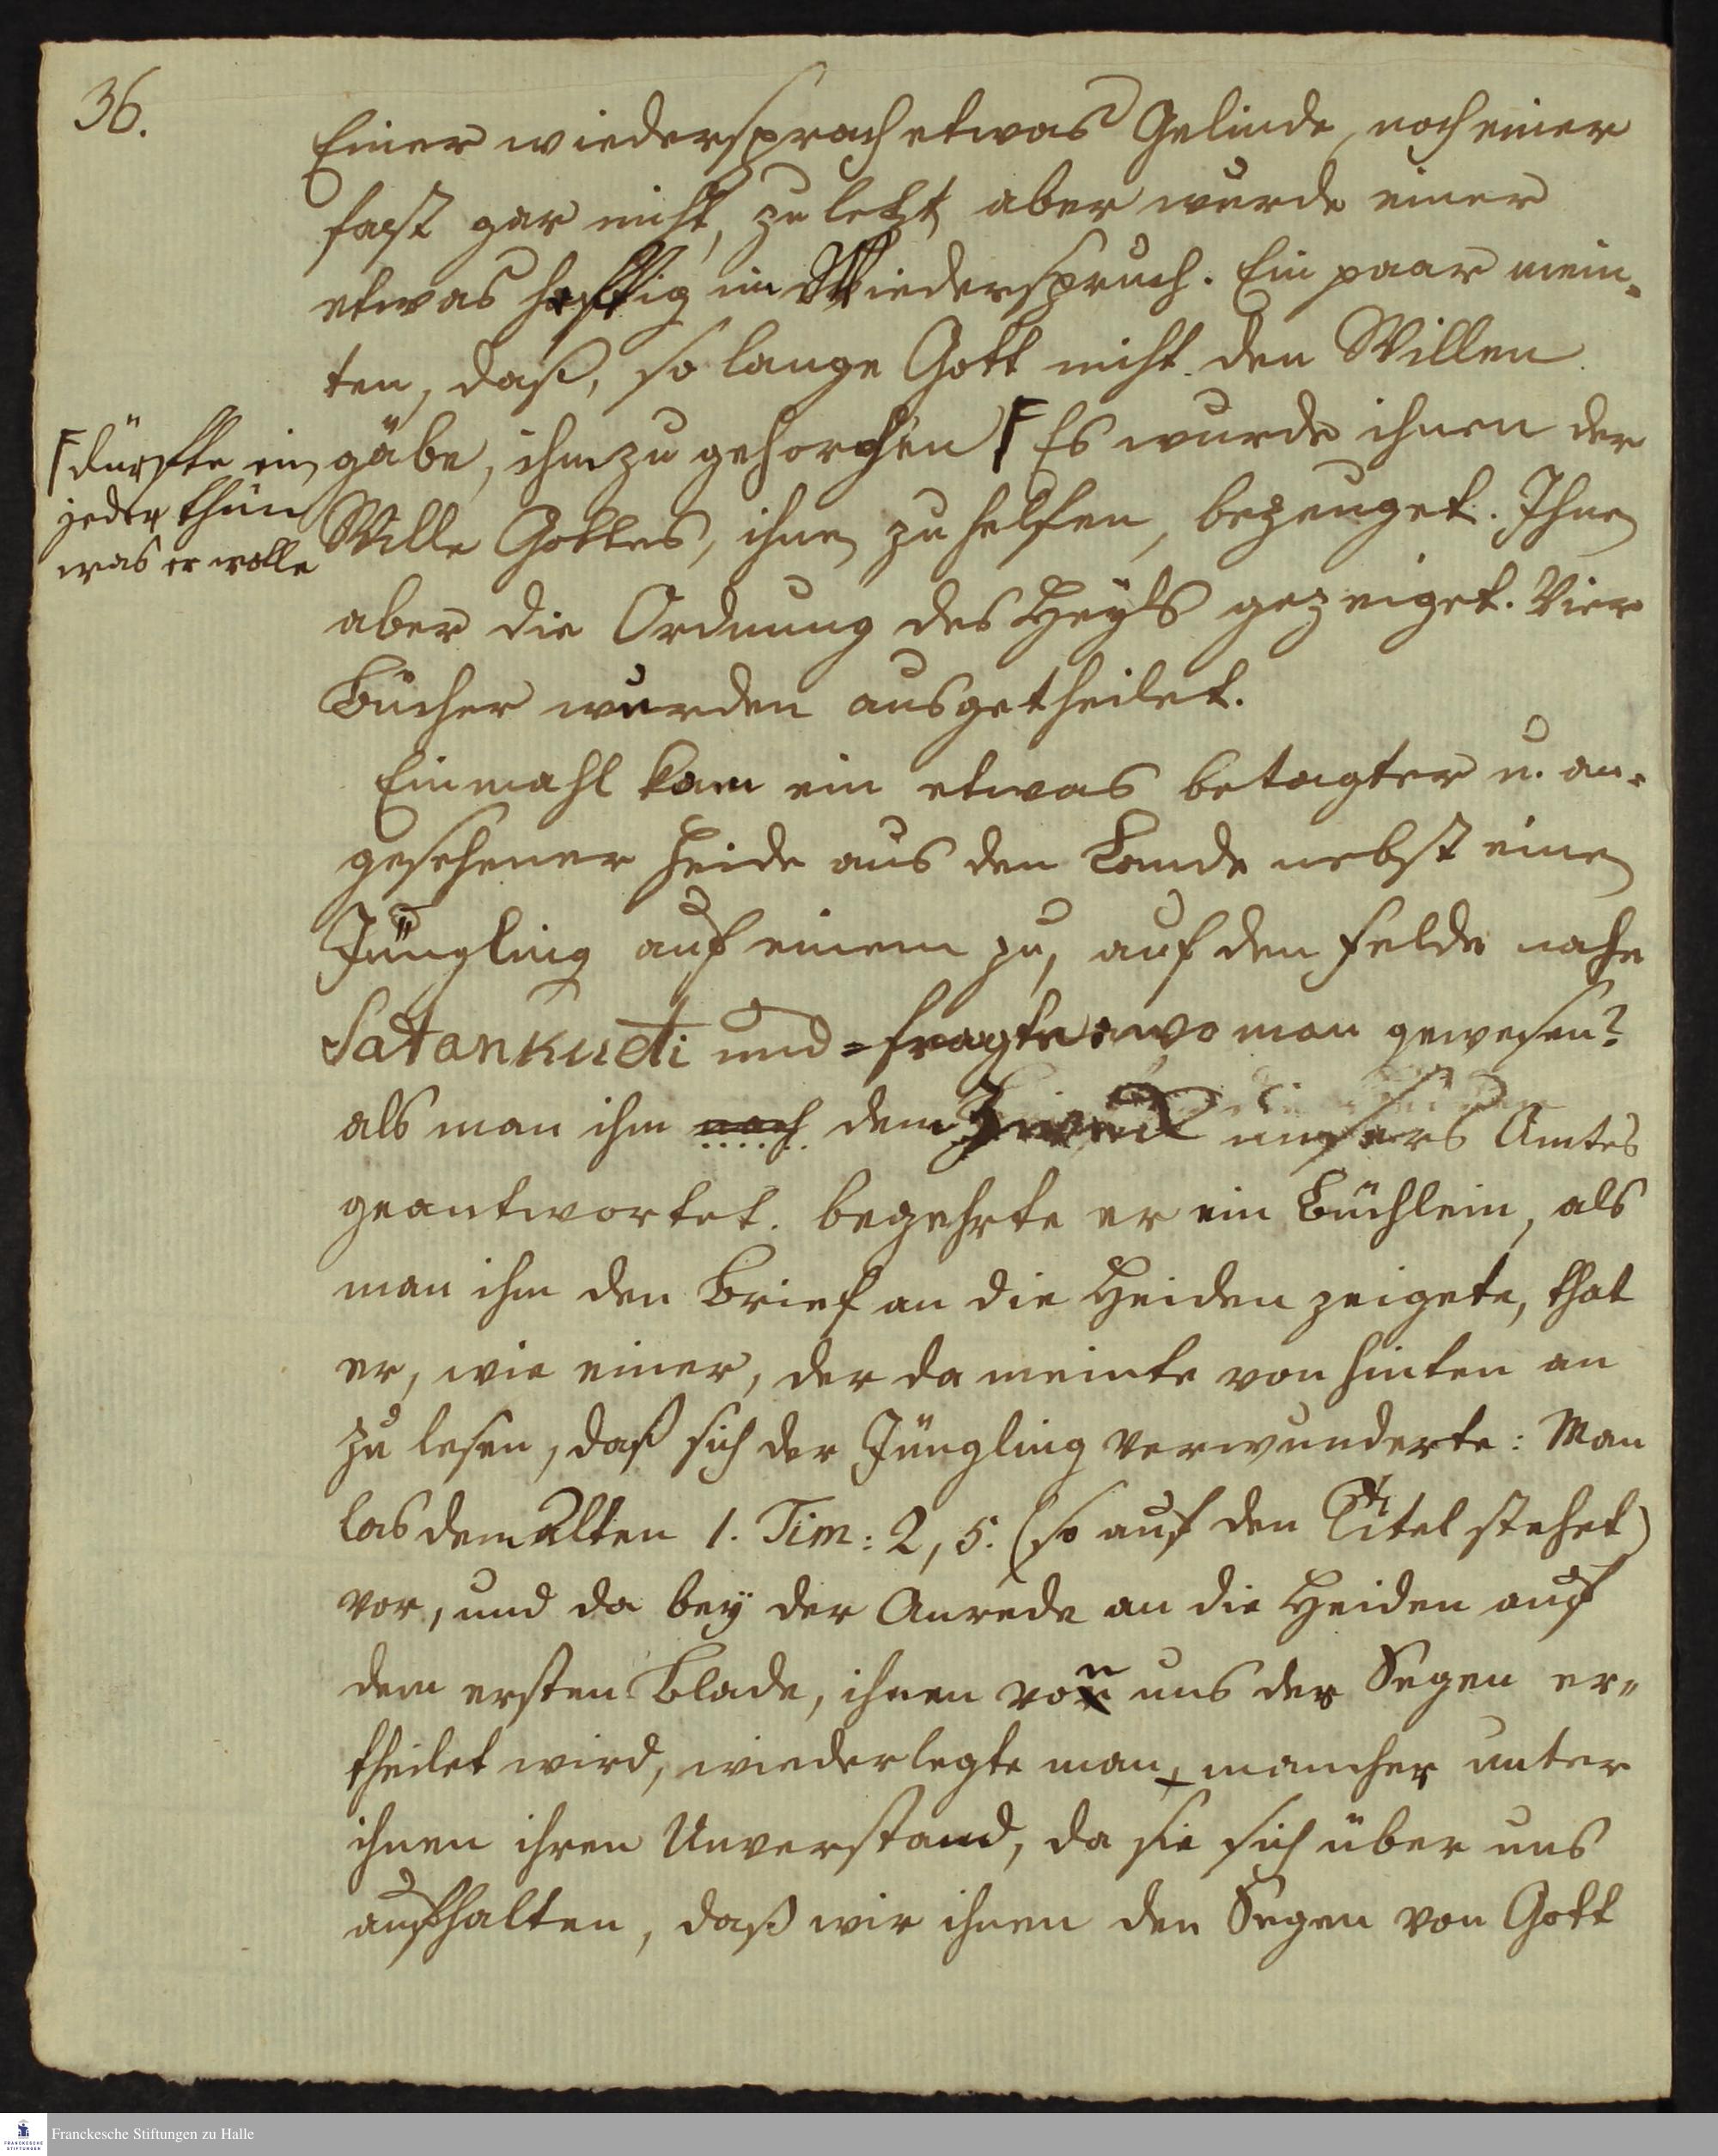 36.
Einer wiedersprach etwas Gelinde, noch einer
fast gar nicht, zu letzt aber wurde einer
etwas hefftig im Wiederspruch. Ein paar mein-
ten, daß, so lange Gott nicht den Willen
gäbe, ihm zu gehorchen Γ Es wurde ihnen der
Γ dürffte ein
jeder thun
was er wolle
Wille Gottes, ihnen zu helfen, bezeuget. Ihnen
aber die Ordnung des Heyls gezeiget. Vier
Bücher wurden ausgetheilet.
Einmahl kam ein etwas betagter u. an-
gesehener Heide aus den Lande nebst einen
Jüngling auf einem zu, auf den Felde nahe
Satankudi und fragte: wo man gewesen?
als man ihm nach dem Zweck unsers Amtes
geantwortet. begehrte er ein Büchlein, als
man ihm den Brief an die Heiden zeigete, that
er, wie einer, der da meinte von hinten an
zu lesen, daß sich der Jüngling verwunderte: Man
las dem Alten 1. Tim: 2, 5. (so auf den Titel stehet)
vor, und da bey der Anrede an die Heiden auf
dem ersten Blade, ihnen von uns der Segen er-
theilet wird, wiederlegte man, mancher unter
ihnen ihren Unverstand, da sie sich über uns
aufhalten, daß wir ihnen den Segen von Gott
Franckesche Stiftungen zu Halle